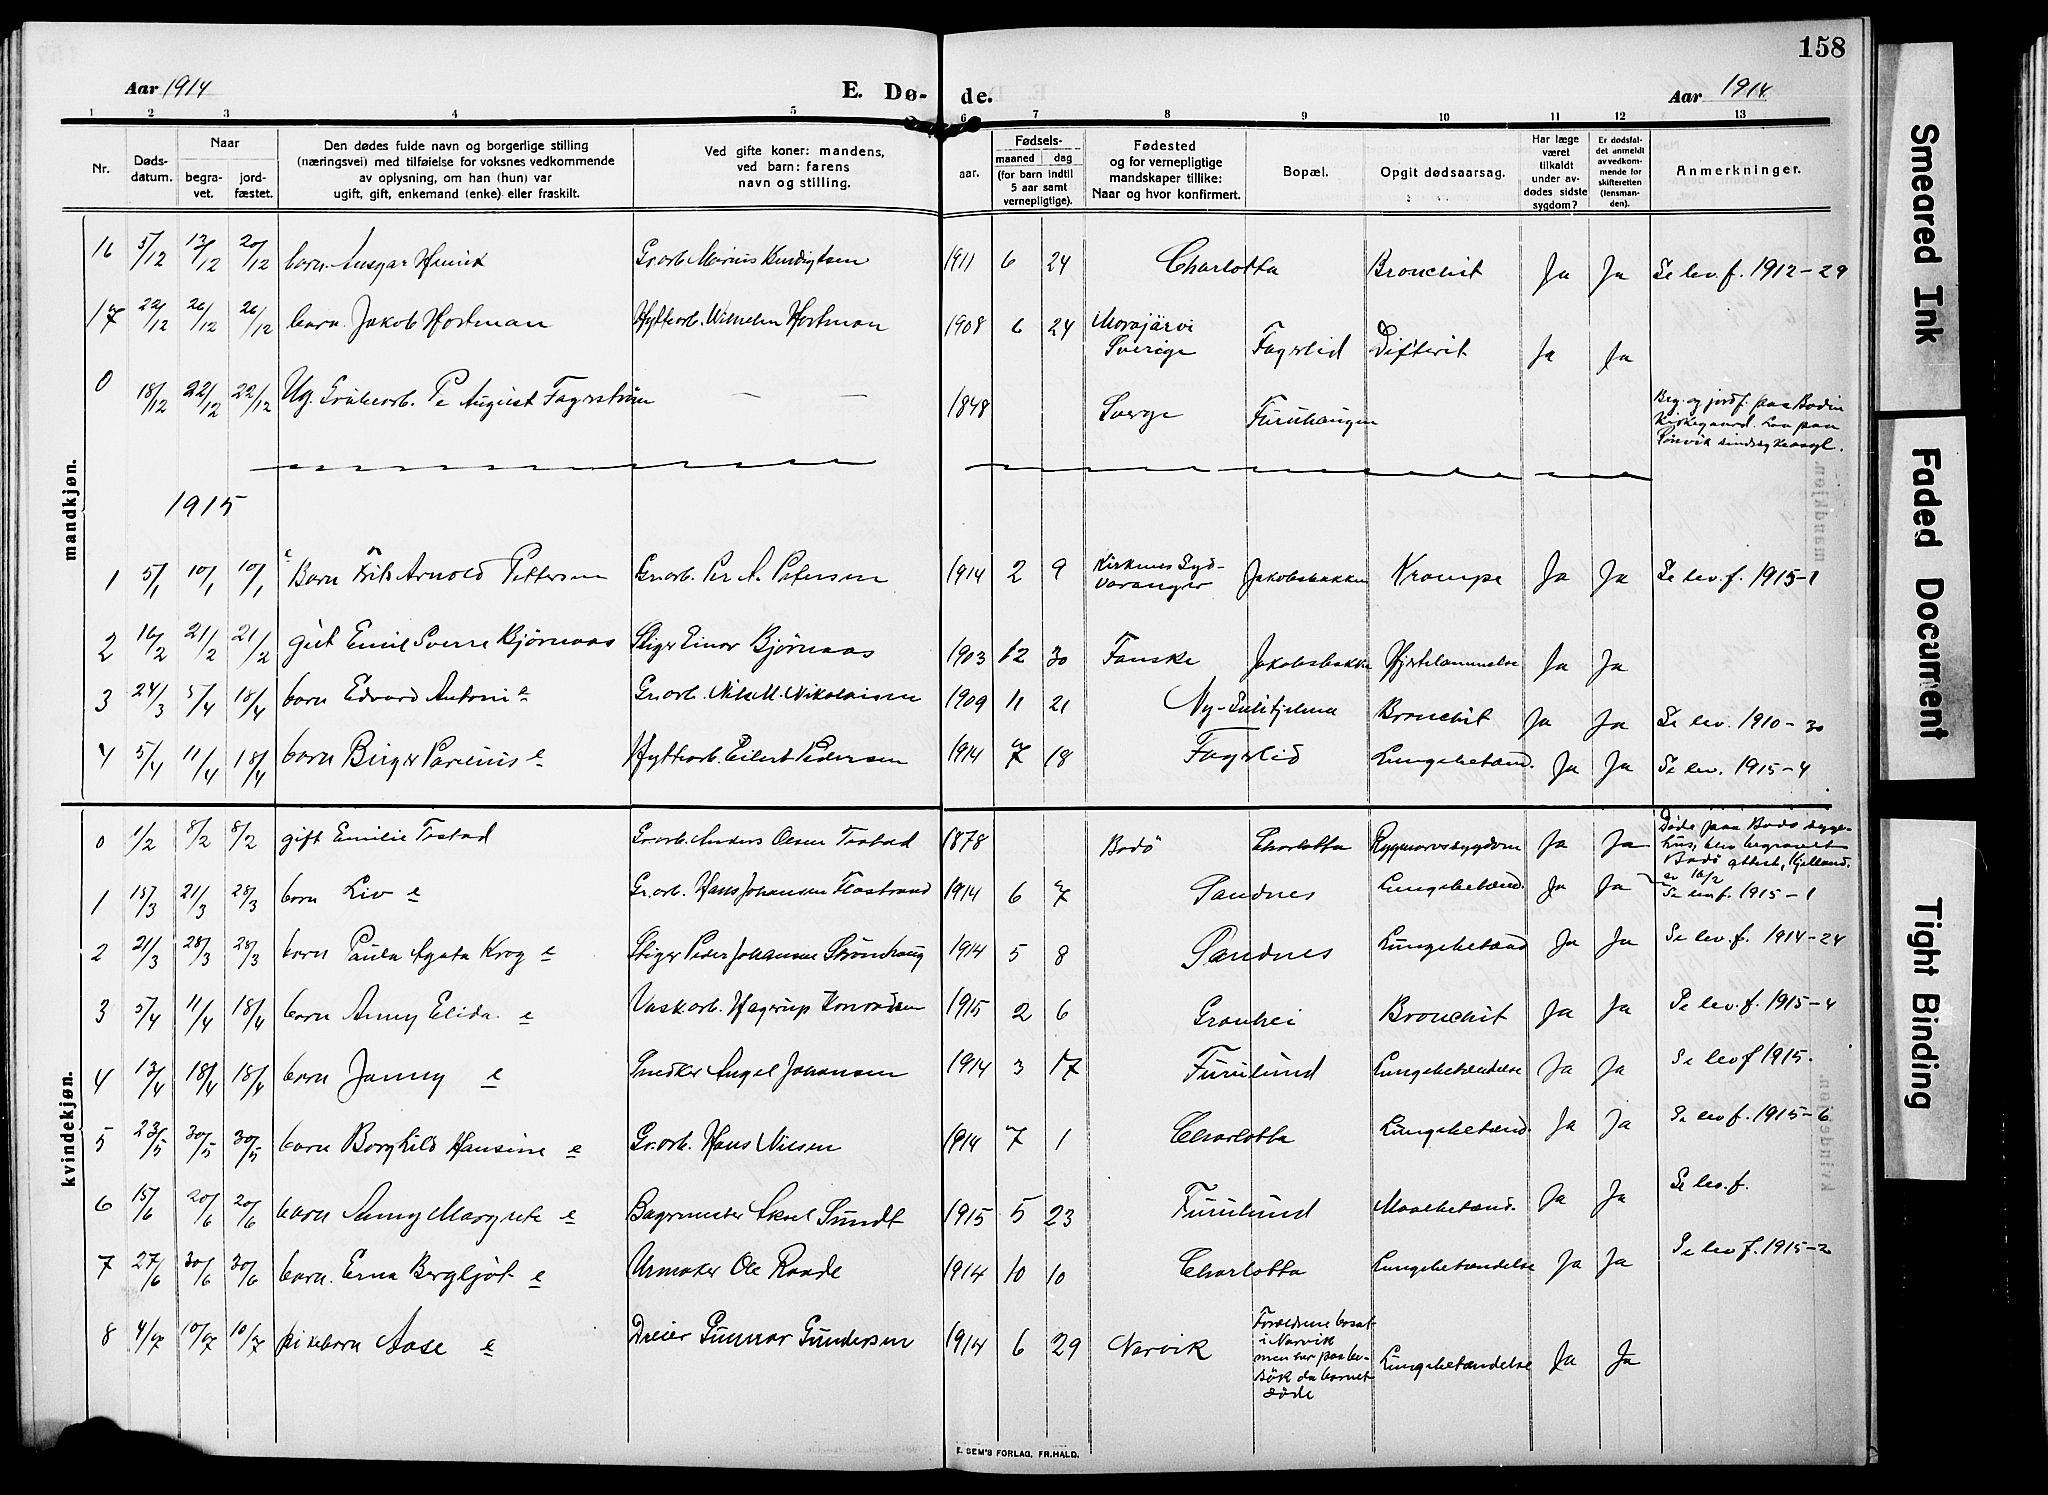 158
Aar 1914
E. Dø-
de.
Aar 1914
1 2 3 4 5 6 7 8 9 10 11 12 13
Nr.
Døds-
datum.
Naar
begra-
vet.
jord-
fæstet.
Den dødes fulde navn og borgerlige stilling
(næringsvei) med tilføielse for voksnes vedkommende
av oplysning, om han (hun) var
ugift, gift, enkemand (enke) eller fraskilt.
Ved gifte koner: mandens,
ved barn: farens
navn og stilling.
Fødsels-
aar.
maaned
dag
(for barn indtil
5 aar samt
vernepligtige).
Fødested
og for vernepligtige
mandskaper tillike:
Naar og hvor konfirmert.
Bopæl.
Opgit dødsaarsag.
Har læge
været
tilkaldt
under av-
dødes sidste
sygdom?
Er dødsfal-
det anmeldt
av vedkom-
mende for
skifteretten
(lensman-
den).
Anmerkninger.
mandkjøn.
16 5/12 13/12 20/12 barn Ansgar Henrik Gr.arb. Marius 1911 6 24 Charlotta Bronchit Ja Ja Se lev. f. 1912-29
17 22/12 26/12 26/12 barn Jakob Hortman Hyttearb. Wilhelm Hortman 1908 6 24 Morajärvi
Sverige Fagerlid Difterit Ja Ja
0 18/12 22/12 22/12 Ug. Grubearb. Pe August Fagerström — — 1848 Sverge Furuhaugen Beg. og jordf. paa Bodin
Kirkegaard. Laa paa
Rønvik sindssykeasyl.
1915
1 5/1 10/1 10/1 Barn Frits Arnold Pettersen Gr.arb. Per A. Petersen 1914 2 9 Kirkenes Syd-
varanger Jakobsbakken Krampe Ja Ja Se lev. f. 1915-1
2 16/2 21/2 21/2 gut Emil Sverre Bjørnaas Stiger Einar Bjørnaas 1903 12 30 Fauske Jakobsbakken Hjertelammelse Ja Ja
3 24/3 5/4 18/4 barn Edvard Antoni e Gr.arb. Nils M. Nikolaisen 1909 11 21 Ny-Sulitjelma Bronchit Ja Ja Se lev. 1910-30
4 5/4 11/4 18/4 barn Birger Parelius e Hyttearb. Eilert Pedersen 1914 7 18 Fagerlid Lungebetænd. Ja Ja Se lev. 1915-4
kvindekjøn.
0 1/2 8/2 8/2 gift Emilie Tostad Gr.arb. Anders Olsen Tostad 1878 Bodö Charlotta Rygmarvssygdom Ja Ja Døde paa Bodø syge-
hus, blev begravet
Bodö attest, Kjelland.
av 16/2
1 15/3 21/3 28/3 barn Liv e Gr.arb. Hans Johansen Flostrand 1914 6 7 Sandnes Lungebetænd. Ja Ja Se lev. f. 1915-1
2 21/3 28/3 28/3 barn Paula Agata Krog e Stiger Peder Johansen Strönhaug 1914 5 8 Sandnes Lungebetænd Ja Ja Se lev. f. 1914-24
3 5/4 11/4 18/4 barn Anny Elida e Vaskarb. Hagerup Konradsen 1915 2 6 Granhei Bronchit Ja Ja Se lev. f. 1915-4
4 13/4 18/4 18/4 barn Jenny e Snedker Angel Johansen 1914 3 17 Furulund Lungebetændelse Ja Ja Se lev f 1915.
5 23/5 30/5 30/5 barn Borghild Hansine e Gr.arb. Hans Nilsen 1914 7 1 Charlotta Lungebetænd. Ja Ja Se lev f. 1915-6
6 15/6 20/6 20/6 barn Anny Margrete e Bagermester Aksel Sundt 1915 5 23 Furulund Maalbetænd. Ja Ja Se lev. f.
7 27/6 30/6 30/6 barn Erna Bergljot e Urmaker Ole Raade 1914 10 10 Charlotta Lungebetændelse Ja Ja Se lev f. 1915-2
8 4/7 10/7 10/7 pikebarn Aase e Dreier Gunnar Gundersen 1914 6 29 Narvik Forældrene bosat
i Narvik
men her paa be-
sök da barnet
döde Lungebetændelse Ja Ja
E. SEM'S FORLAG, FR.HALD.
Smeared Ink
Faded Document
Tight Binding